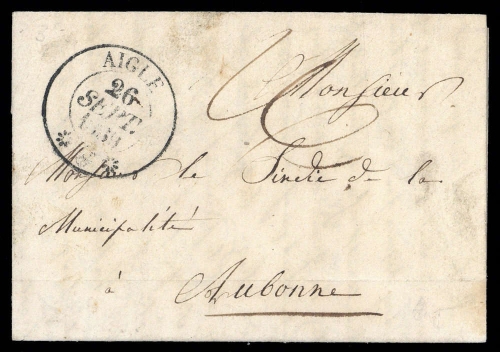 AIGLE
26
SEPT.
Monsieur
Monsieur le Sindic de la
Municipalité
à Aubonne